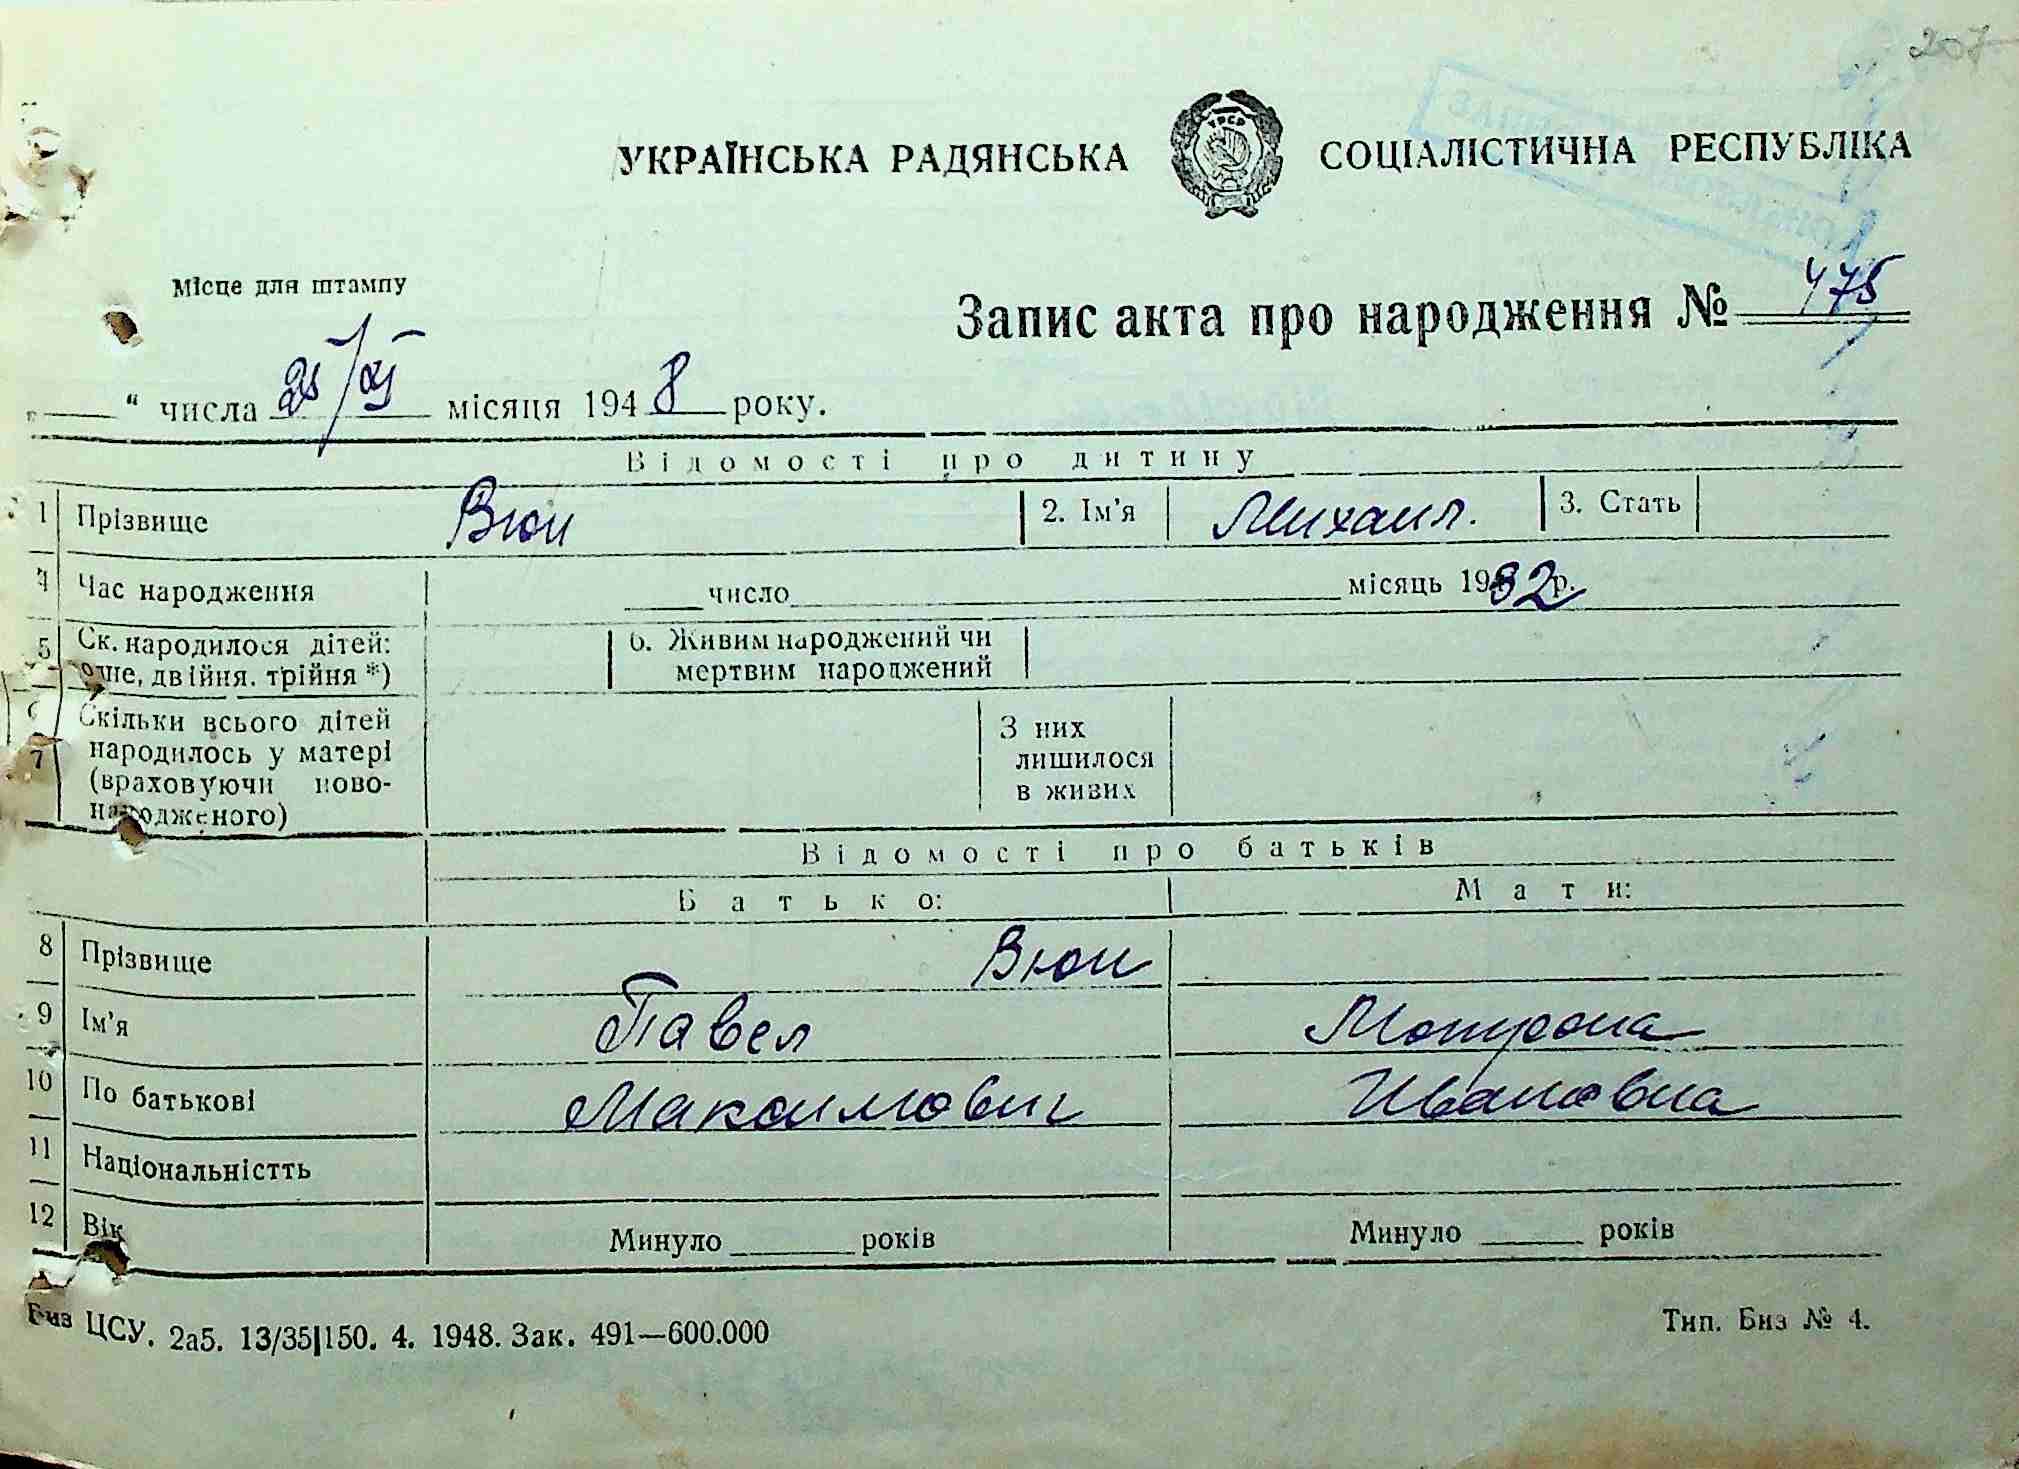 207
УКРАЇНСЬКА РАДЯНСЬКА СОЦІАЛІСТИЧНА РЕСПУБЛІКА
УРСР
Місце для штампу
Запис акта про народження № 475
„ “ числа 25/XI місяця 1948 року.
Відомості про дитину
1 Прізвище Вюн 2. Ім'я Михаил. 3. Стать
4 Час народження число місяць 1932 р.
5 Ск. народилося дітей: 6. Живим народжений чи
одне, двійня. трійня *) мертвим народжений
7 Скільки всього дітей З них
народилось у матері лишилося
(враховуючи ново- в живих
народженого)
Відомості про батьків
Батько: Мати:
8 Прізвище Вюн
9 Ім'я Павел Мотрона
10 По батькові Максимович Ивановна
11 Національністть
12 Вік Минуло років Минуло років
Биз ЦСУ. 2а5. 13/35|150. 4. 1948. Зак. 491—600.000 Тип. Биз № 4.